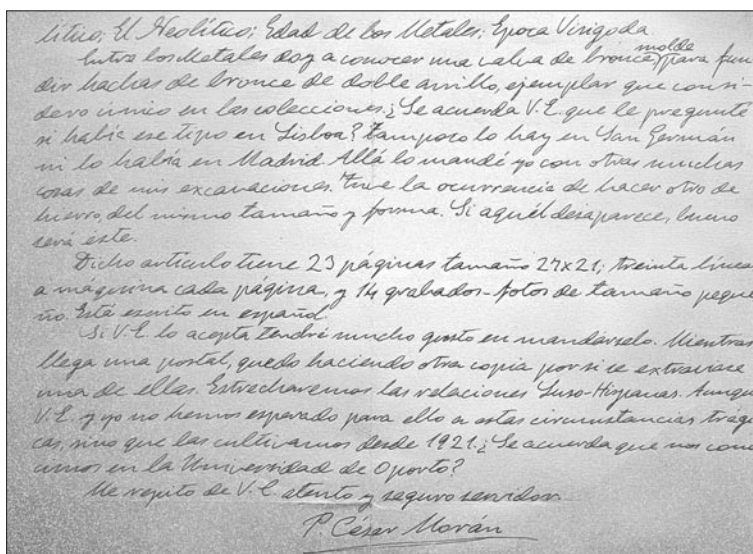 lítico; El Neolítico; Edad de los Metales; Epoca Visigoda
Entre los Metales doy a conocer una valva de bronce, molde para fun
dir hachas de bronce de doble anillo, ejemplar que consi-
dero único en las colecciones. ¿Se acuerda V.E. que le pregunté
si había ese tipo en Lisboa? Tampoco lo hay en San Germán
ni lo había en Madrid. Allá lo mandé yo con otras muchas
cosas de mis excavaciones. Tuve la ocurrencia de hacer otro de
hierro, del mismo tamaño y forma. Si aquél desaparece, bueno
será éste.
Dicho artículo tiene 23 páginas tamaño 27x21; treinta línea
a máquina cada página, y 14 grabados-fotos de tamaño peque
ño. Está escrito en español.
Si V.E. lo acepta tendré mucho gusto en mandárselo. Mientras
llega una postal, quedo haciendo otra copia por si se extraviase
una de ellas. Estrecharemos las relaciones Luso-Hispanas. Aunque
V.E. y yo no hemos esperado para ello a estas circunstancias trági
cas, sino que las cultivamos desde 1921. ¿Se acuerda que nos cono
cimos en la Universidad de Oporto?
Me repito de V.E. atento y seguro servidor
P. César Morán